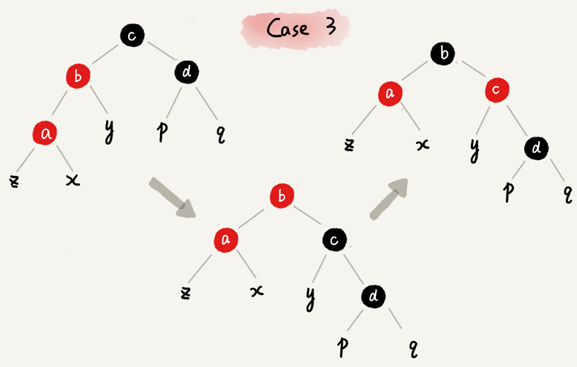 Case 3
c
b
d
a
y
p
q
z
x
b
a
c
z
x
y
d
p
q
b
a
c
z
x
y
d
p
q